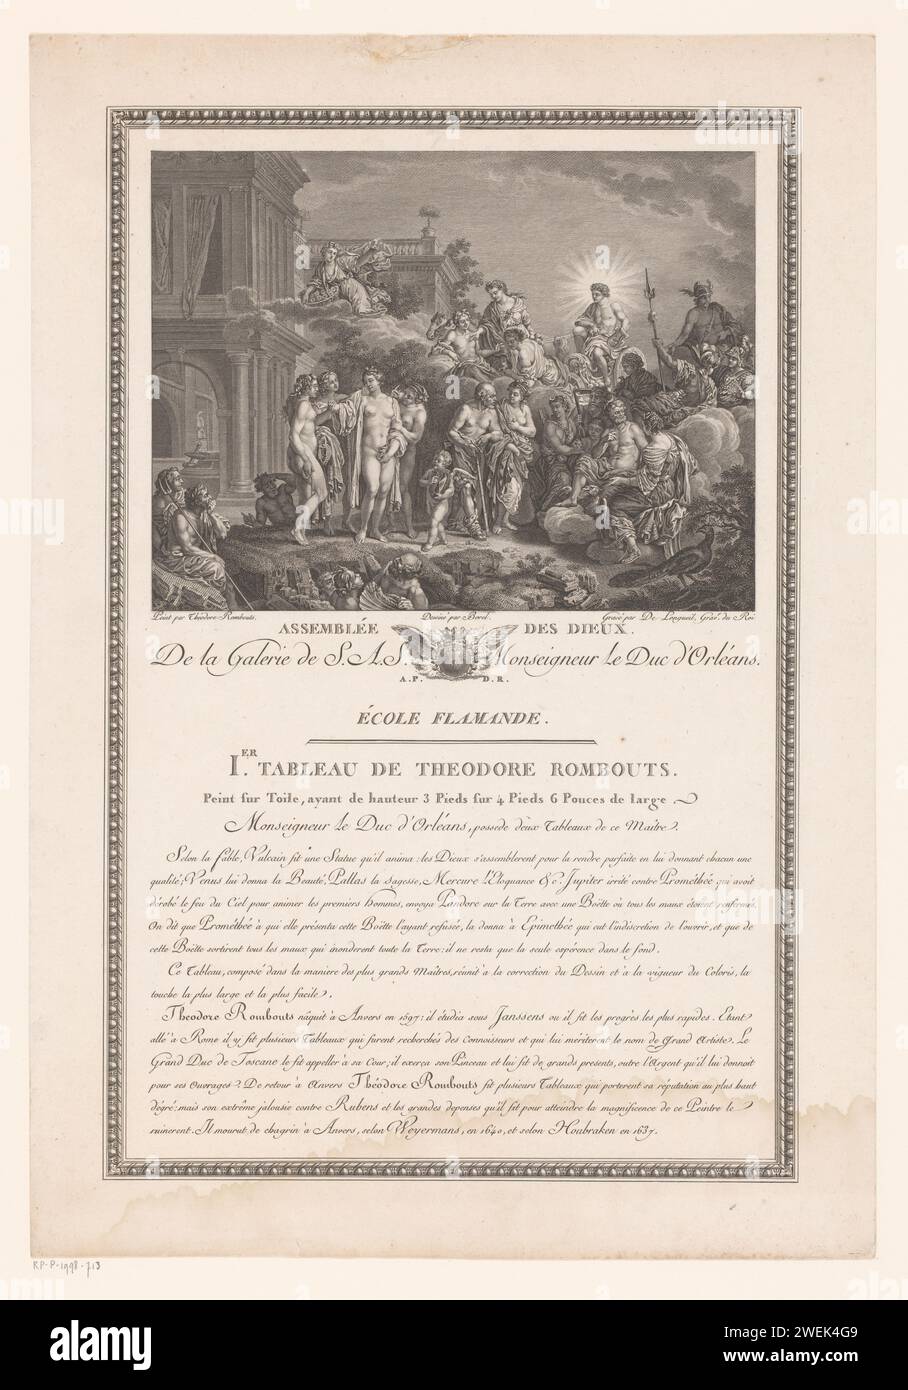 Peint par Theodore Rombouts. Dessiné par Borel. Gravé par De Longueil, Grav. du Roi
ASSEMBLÉE DES DIEUX.
De la Galerie de S.A.S. Monseigneur Le Duc d'Orléans.
A.P. D.R.
ÉCOLE FLAMANDE.
I.ER TABLEAU DE THEODORE ROMBOUTS.
Peint sur Toile, ayant de hauteur 3 Pieds sur 4 Pieds 6 Pouces de large
Monseigneur Le Duc d'Orléans, possede deux Tableaux de ce Maitre.
Selon la fable, Vulcain fit une Statue qu'il anima: les Dieux s'assemblerent pour la rendre parfaite en lui donnant chacun une
qualité; Venus lui donna la Beauté, Pallas la sagesse, Mercure l'Eloquance &c. Jupiter irrité contre Prométhée qui avoit
dérobé le feu du Ciel pour animer les premiers hommes, envoya Pandore sur la Terre avec une Boëtte où tous les maux étoient renfermés.
On dit que Prométhée à qui elle présenta cette Boëtte l'ayant refusée, la donna à Epimethée qui eut l'indiscretion de l'ouvrir, et que de
cette Boëtte sortirent tous les maux qui inonderent toute la Terre: il ne resta que la seule espérence dans le fond.
Ce Tableau, composé dans la maniere des plus grands Maitres, réunit à la correction du Dessin et à la vigueur du Coloris, la
touche la plus large et la plus facile.
Theodore Rombouts nâquit à Anvers en 1597: il étudia sous Janssens ou il fit les progrès les plus rapides. Etant
allé à Rome il y fit plusieurs Tableaux qui furent recherchés des Connoisseurs et qui lui mériterent le nom de Grand Artiste. Le
Grand Duc de Toscane le fit appeller à sa Cour; il exerça son Pinceau et lui fit de grands presents, outre l'Argent qu'il lui donnoit
pour ses Ouvrages. De retour à Anvers Théodore Rombouts fit plusieurs Tableaux qui porterent sa réputation au plus haut
dégré: mais son extrême jalousie contre Rubens et les grandes depenses qu'il fit pour atteindre la magnificence de ce Peintre le
ruinerent. Il mourut de chagrin à Anvers, selon Weyermans, en 1640, et selon Houbraken en 1637.
RP-P-1998-713
alamy
Image ID: 2WEK4G9
www.alamy.com